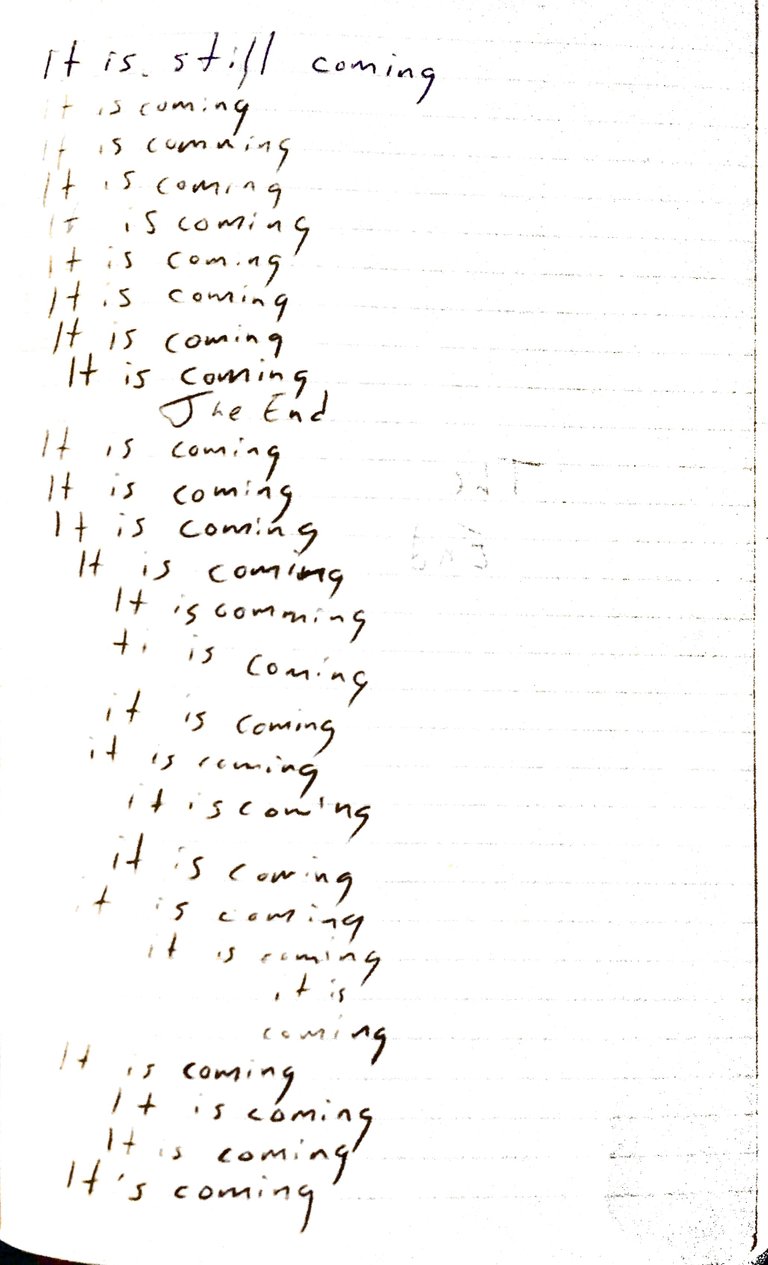 It is still coming
It is coming
It is comming
It is coming
It is coming
It is coming
It is coming
It is coming
It is coming
The End
It is coming
It is coming
It is coming
It is coming
It is comming
ti is coming
it is coming
it is coming
it is coming
it is coming
it is coming
it is coming
it is
coming
It is coming
It is coming
It is coming
It's coming
The
End